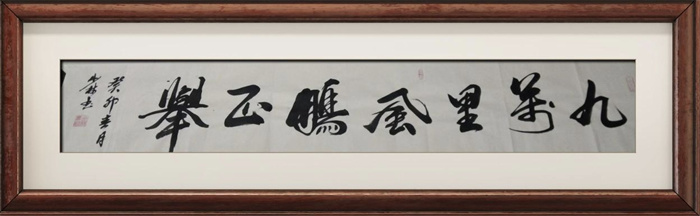 九萬里風鵬正舉
癸卯春月